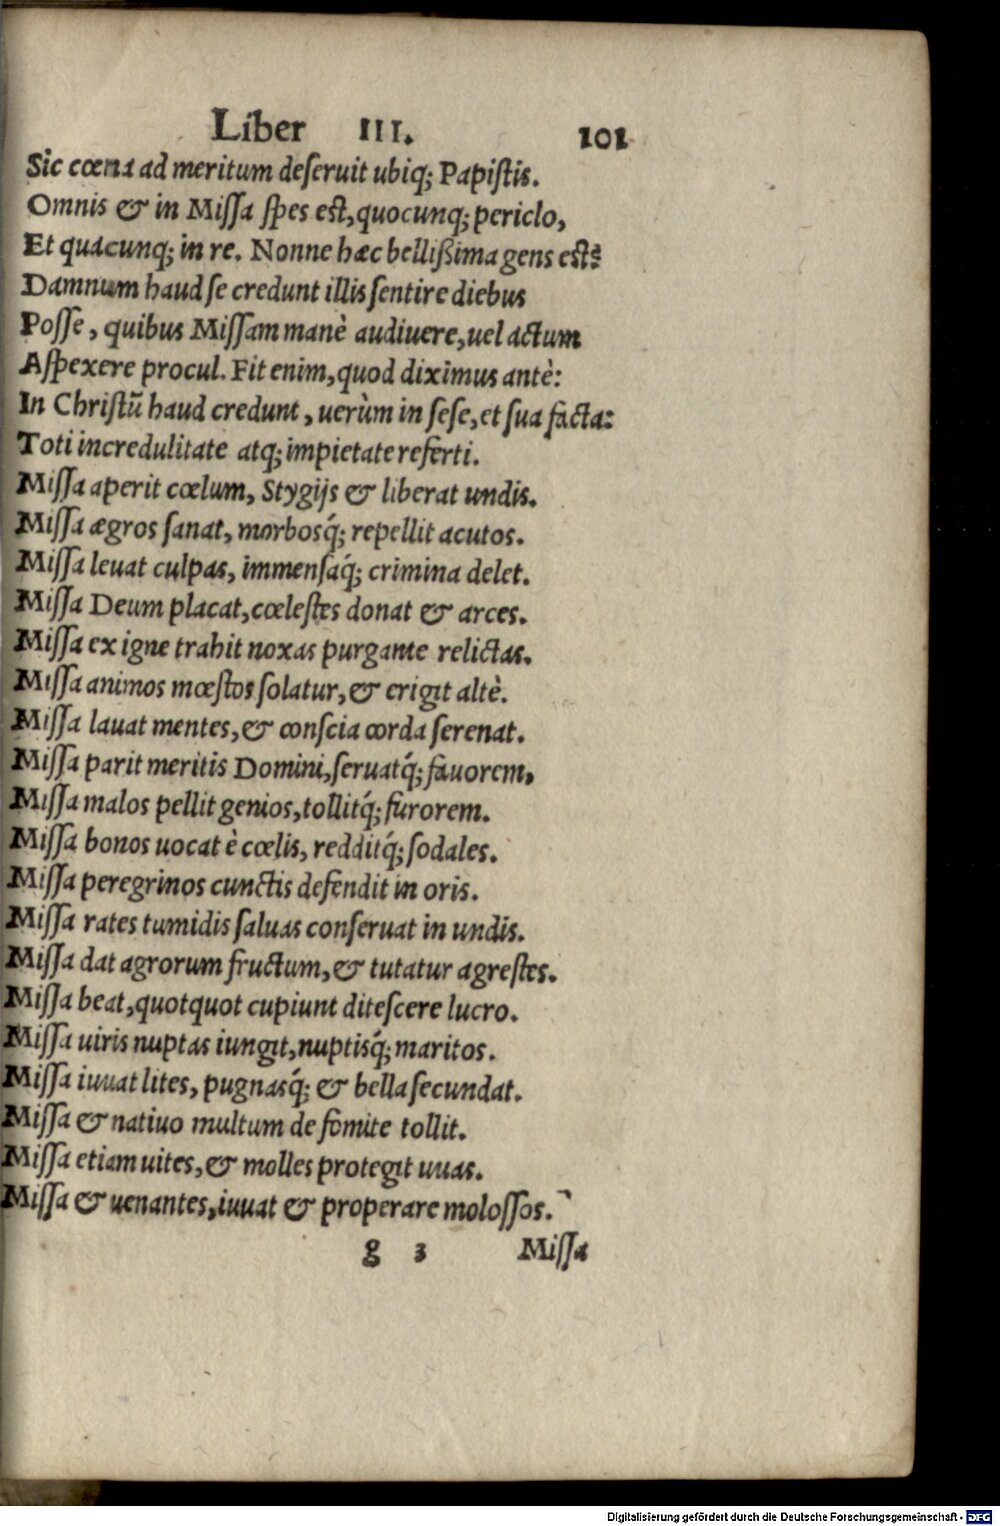 Liber III. 101
Sic cœna ad meritum deſeruit ubiq; Papiſtis.
Omnis & in Miſſa ſpes eſt, quocunq; periclo,
Et quacunq; in re. Nonne hæc bellißima gens eſt?
Damnum haud ſe credunt illis ſentire diebus
Poſſe, quibus Miſſam manè audiuere, uel actum
Aſpexere procul. Fit enim, quod diximus antè:
In Chriſtū haud credunt, uerùm in ſeſe, et ſua facta:
Toti incredulitate atq; impietate referti.
Miſſa aperit cœlum, Stygijs & liberat undis.
Miſſa ægros ſanat, morbosq́; repellit acutos.
Miſſa leuat culpas, immenſaq́; crimina delet.
Miſſa Deum placat, cœleſtes donat & arces.
Miſſa ex igne trahit noxas purgante relictas.
Miſſa animos mœſtos ſolatur, & erigit altè.
Miſſa lauat mentes, & conſcia corda ſerenat.
Miſſa parit meritis Domini, ſeruatq́; fauorem,
Miſſa malos pellit genios, tollitq́; furorem.
Miſſa bonos uocat è cœlis, redditq́; ſodales.
Miſſa peregrinos cunctis defendit in oris.
Miſſa rates tumidis ſaluas conſeruat in undis.
Miſſa dat agrorum fructum, & tutatur agreſtes.
Miſſa beat, quotquot cupiunt diteſcere lucro.
Miſſa uiris nuptas iungit, nuptisq́; maritos.
Miſſa iuuat lites, pugnasq́; & bella ſecundat.
Miſſa & natiuo multum de fomite tollit.
Miſſa etiam uites, & molles protegit uuas.
Miſſa & uenantes, iuuat & properare moloſſos.
g 3 Miſſa
Digitalisierung gefördert durch die Deutsche Forschungsgemeinschaft - DFG